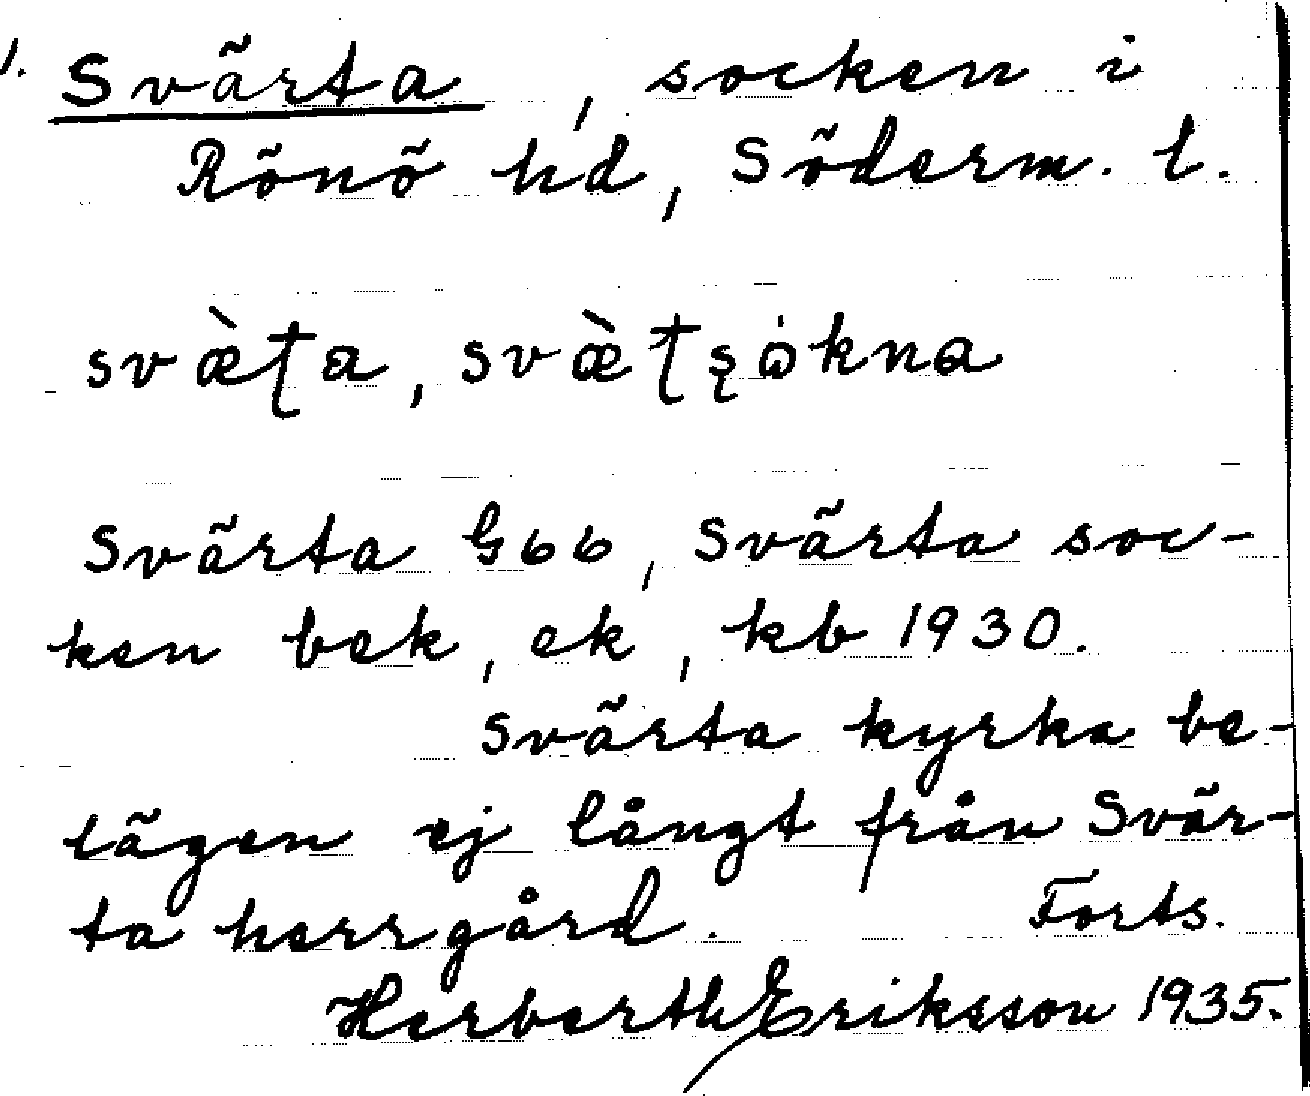 1. Svärta, socken i
Rönö hd, Söderm. l.
svæ̀ʈa, svæ̀ʈʂòkna
Svärta G66, Svärta soc-
ken bek, ek, kb 1930.
Svärta kyrka be-
lägen ej långt från Svär-
ta herrgård. Forts.
Herberth Eriksson 1935.